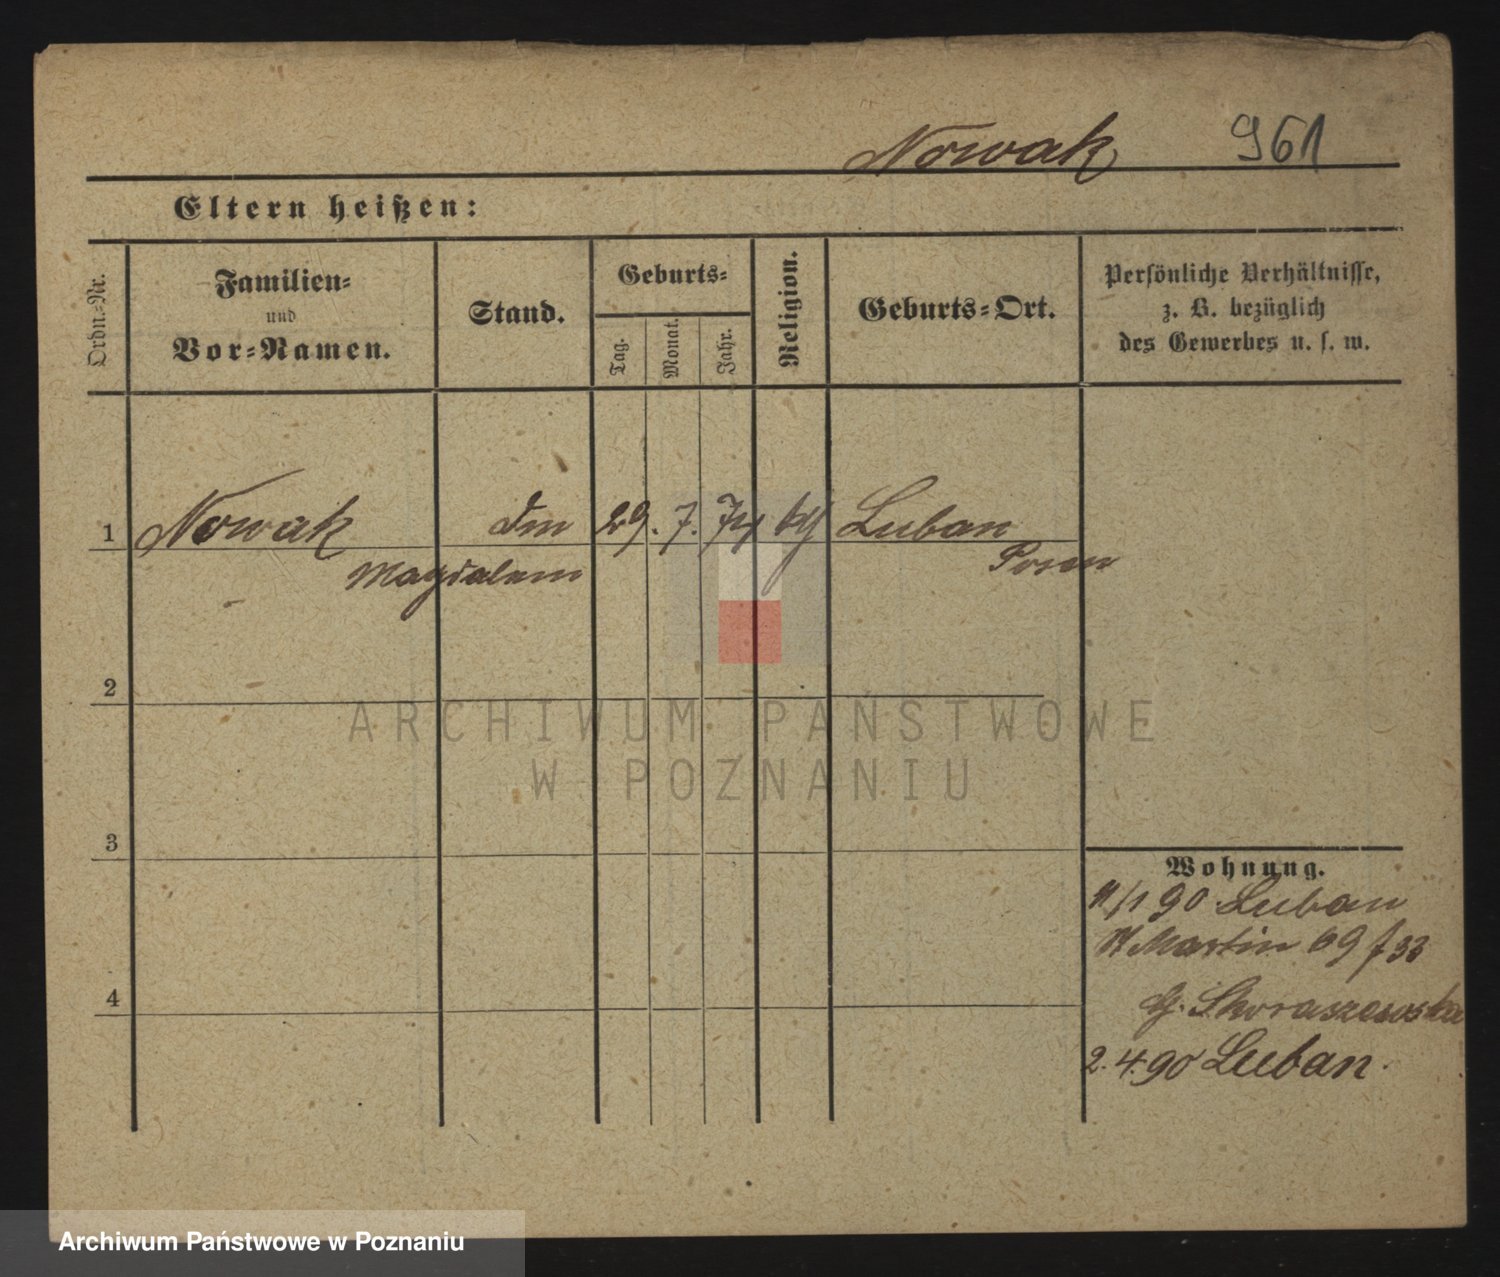 Nowak 961
Eltern heißen:
Ordn.-Nr.
Familien-
und
Vor-Namen.
Stand.
Geburts-
Tag.
Monat.
Jahr.
Religion.
Geburts-Ort.
Persönliche Verhältnisse,
z. B. bezüglich
des Gewerbes u. s. w.
1 Nowak 29. 7. 74 Luban
Magdalena Posen
2
ARCHIWUM PAŃSTWOWE
W POZNANIU
3
4
Wohnung.
90 Luban
St Martin 69
Skoraszewska
2.4.90 Luban.
Archiwum Państwowe w Poznaniu